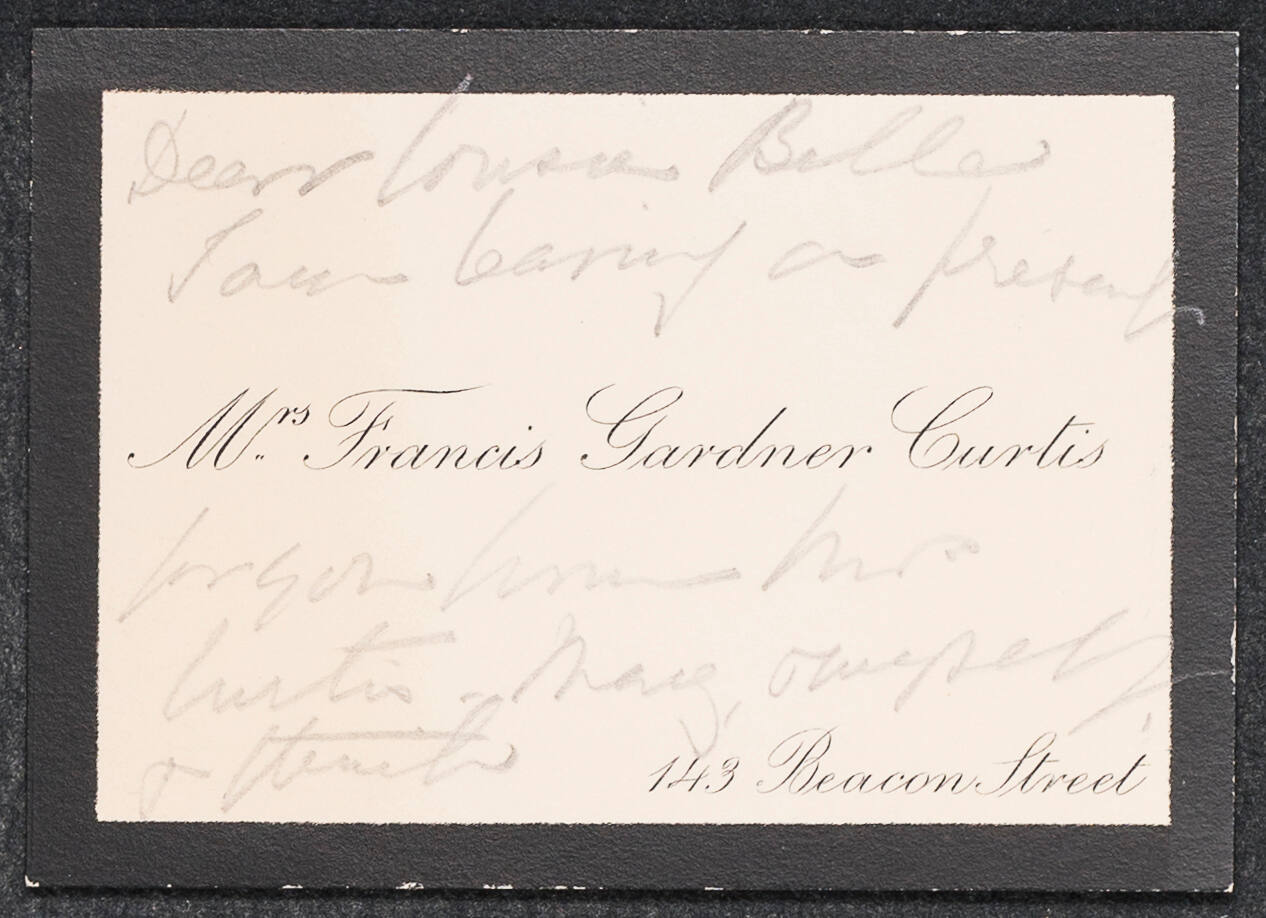 Dear Cousin Belle
I am leaving a present
Mrs. Francis Gardner Curtis
for you from Mrs
Curtis - Mary, myself,
&
143 Beacon Street